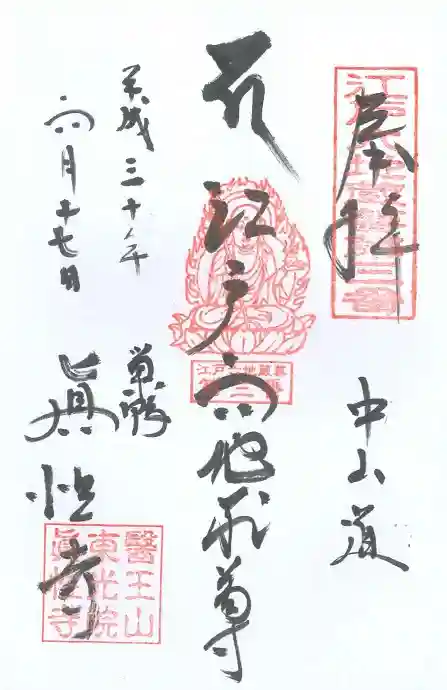 奉拝
中山道
江戸六地蔵尊
平成三十年
六月十七日
巣鴨
眞性寺
江戸六地蔵第三番
江戸六地蔵尊
第三番
醫王山
東光院
眞性寺